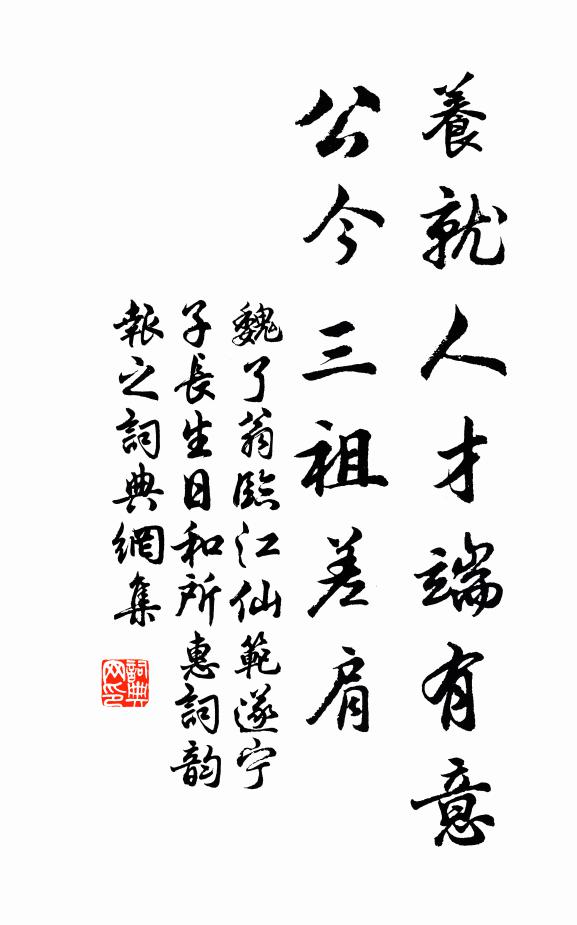 養就人才端有意
公今三祖差肩
魏了翁臨江仙範遂宁
子長生日和所惠詞韵
報之詞典網集
詞典網印